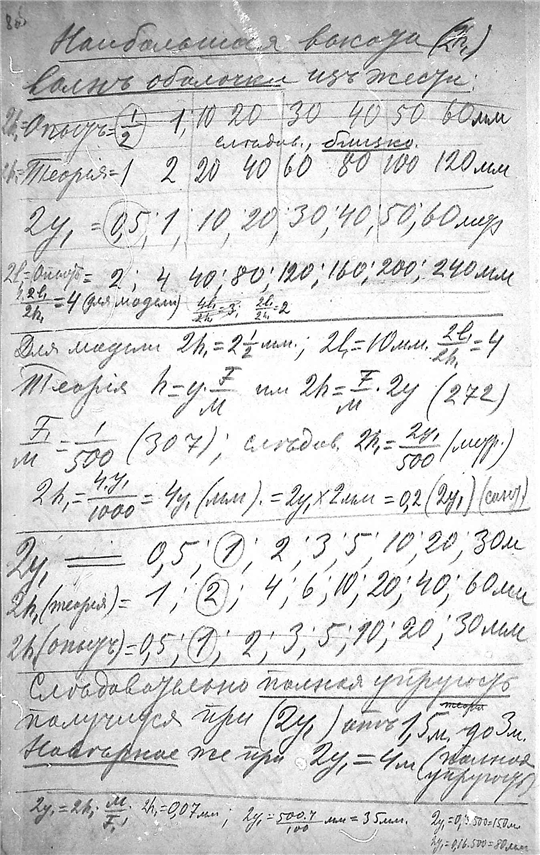 86
Наибольшая высота (2h₁)
волнъ оболочки изъ жести.
2h₁=Опытъ=1/2 1, 10 20 30 40 50 60мм
слѣдов., близко.
2h₁=Теорія=1 2 20 40 60 80 100 120мм
2y₁ = 0,5; 1; 10; 20; 30; 40; 50; 60метр
2l₁=Опытъ= 2; 4 40; 80; 120; 160; 200; 240мм
2l₁/2h₁=4 (для модели) 4l₁/2h=3; 2l₁/2h₁=2
Для модели 2h₁=2 1/2 мм.; 2l₁=10мм. 2l₁/2h₁=4
Теорія h=y·F/M или 2h=F/M·2y (272)
F₁/M=1/500 (307); слѣдов. 2h₁=2y₁/500 (метр.)
2h₁=4·y₁/1000=4y₁(мм).=2y₁×2мм=0,2(2y₁)(сант.)
2y₁ = 0,5; 1; 2; 3; 5; 10; 20; 30м
2h₁(теорія)= 1; 2; 4; 6; 10; 20; 40; 60мм
2h₁(опытъ)=0,5; 1; 2; 3; 5; 10; 20; 30мм
Слѣдовательно полная упругость
теорія
получится при (2y₁) отъ 1,5м до 3м.
же при 2y₁=4м (полная
упругость)
2y₁=2h₁·M/F₁; 2h₁=0,07мм; 2y₁=500·7/100 мм=35мм.
2y₁=0,3·500=150м
2y₁=0,16·500=80мм